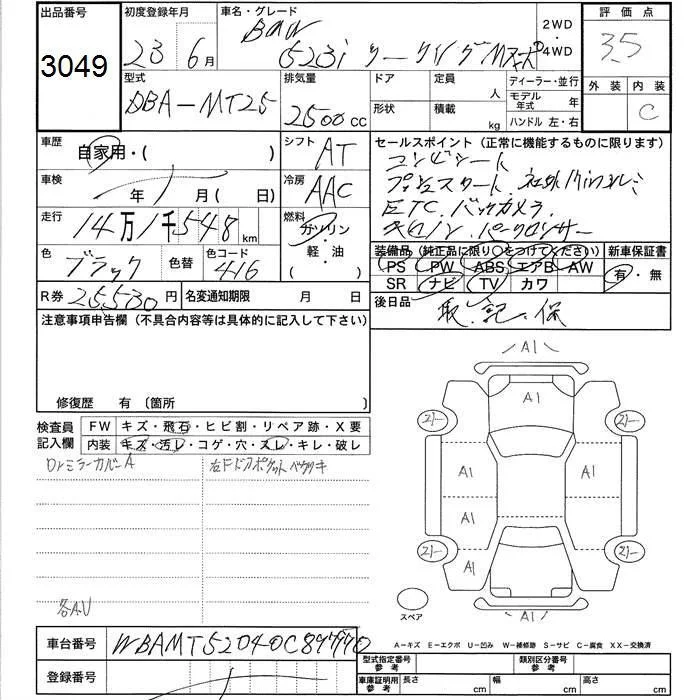 出品番号 初度登録年月 車名・グレード 2WD 評価点
3049 23年6月 BMW 4WD 3.5
523i ツーリングMスポ
外装 内装
C
型式 排気量 ドア 定員 人 ディーラー・並行
DBA-MT25 2500cc 形状 積載 kg モデル年式 年
ハンドル 左・右
車歴 自家用・( ) シフト AT セールスポイント(正常に機能するものに限ります)
コンビシート
車検 年 月(日) 冷房 AAC プッシュスタート 社外17インチアルミ
走行 14万1千548km 燃料 ガソリン・軽・油( ) ETC.バックカメラ.
キセノン.パークセンサー
色 ブラック 色替 色コード 416
装備品(純正品に限り○をつけてください) 新車保証書
PS PW ABS エアB AW 有・無
SR ナビ TV カワ
R券 25,530円 名変通知期限 月 日 後日品 取.記.保
注意事項申告欄(不具合内容等は具体的に記入して下さい)
修復歴 有〔箇所 〕
検査員記入欄 FW キズ・飛石・ヒビ割・リペア跡・X要
内装 キズ・汚レ・コゲ・穴・スレ・キレ・破レ
Drミラーカバー A 右Fドアポケット
各A.U
A1
A1
21- 21-
A1 A1
A1
21- 21-
A1
スペア
車台番号
A-キズ E-エクボ U-凹み W-補修跡 S-サビ C-腐食 XX-交換済
登録番号
型式指定番号参考 類別区分番号参考
車庫証明用参考 長さ cm 幅 cm 高さ cm